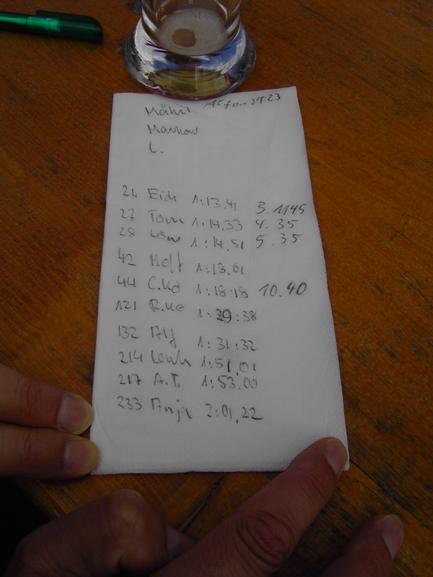 Markow
L.
24 Eich 1:13.41 3. 1145
27 Tom 1:14.33 4. 35
28 1:14.51 5. 35
42 Hoff 1:18.01
44 C.Ko 1:18:18 10.40
121 R.Ko 1:39:38
132 Alf 1:31:32
214 1:51,01
217 A.T. 1:53.00
233 Anja 2:01,22